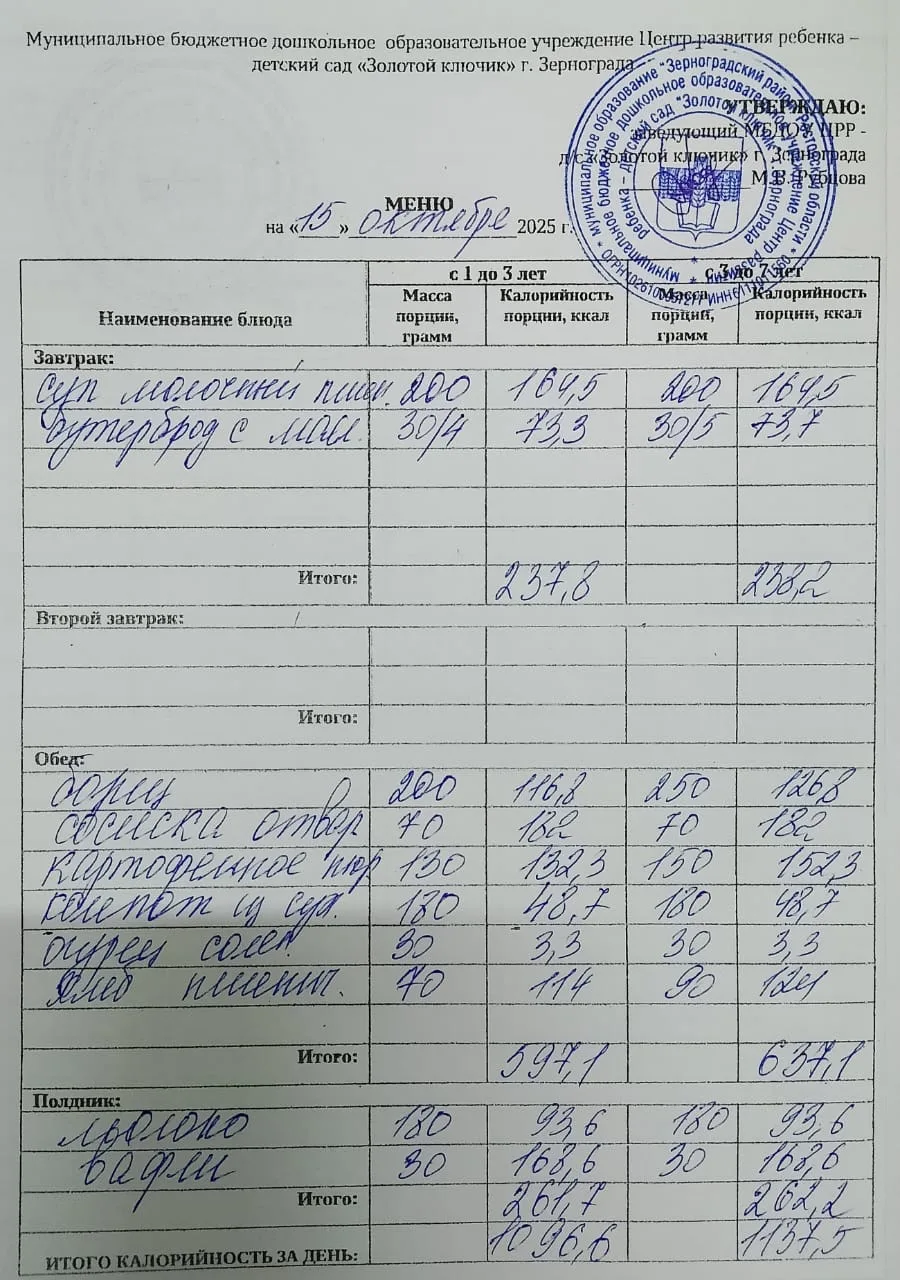 Муниципальное бюджетное дошкольное образовательное учреждение Центр развития ребенка –
детский сад «Золотой ключик» г. Зернограда
УТВЕРЖДАЮ:
заведующий МБДОУ ЦРР -
д/с «Золотой ключик» г. Зернограда
М.В. Рубцова
МЕНЮ
на «15» октября 2025 г.
Наименование блюда с 1 до 3 лет с 3 до 7 лет
Масса порции, грамм Калорийность порции, ккал Масса порции, грамм Калорийность порции, ккал
Завтрак:
суп молочный пшен. 200 164,5 200 164,5
бутерброд с масл. 30/4 73,3 30/5 73,7
Итого: 237,8 238,2
Второй завтрак:
Итого:
Обед:
борщ 200 116,8 250 126,8
сосиска отвар 70 182 70 182
картофельное пюр 130 132,3 150 152,3
компот из сух. 180 48,7 180 48,7
огурец солен. 30 3,3 30 3,3
хлеб пшенич. 70 114 90 124
Итого: 597,1 637,1
Полдник:
молоко 180 93,6 180 93,6
вафли 30 168,6 30 168,6
Итого: 261,7 262,2
ИТОГО КАЛОРИЙНОСТЬ ЗА ДЕНЬ: 1096,6 1137,5
муниципальное образование "Зерноградский район" Ростовской области
муниципальное бюджетное дошкольное образовательное учреждение Центр развития
ребенка – детский сад "Золотой ключик" г. Зернограда